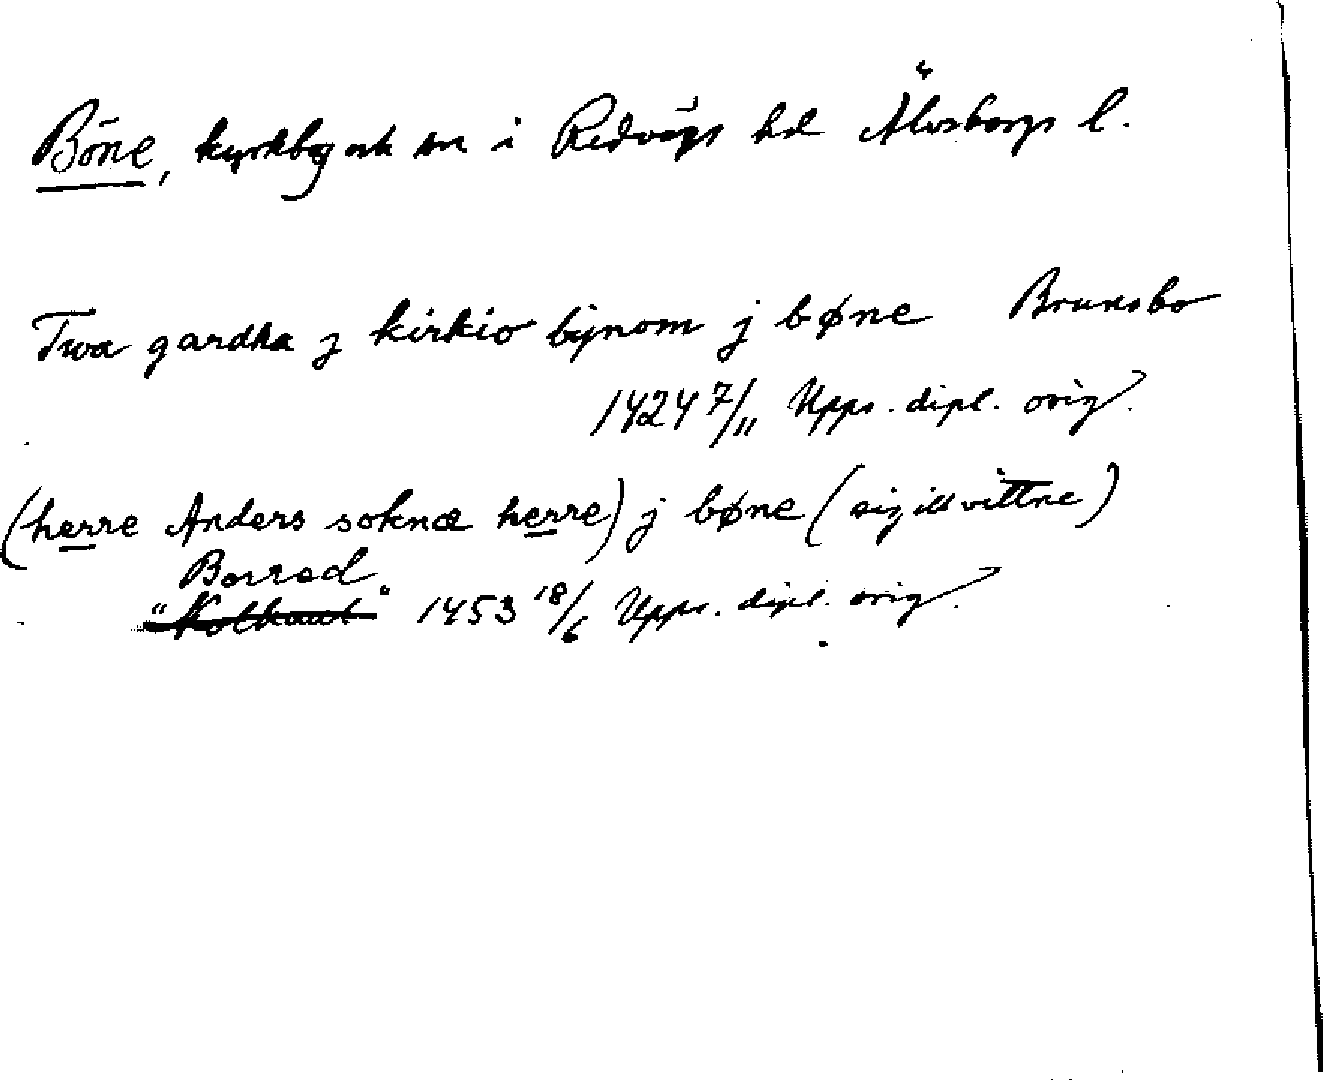 Böne, kyrkby ock sn i Redvägs hd Älvsborgs l.
Twa gardha j kirkio bynom j bøne Brunsbo
1424 7/11 Upps. dipl. orig.
(herre Anders soknæ herre) j bøne (sigillvittne)
Borred
1453 18/6 Upps. dipl. orig.